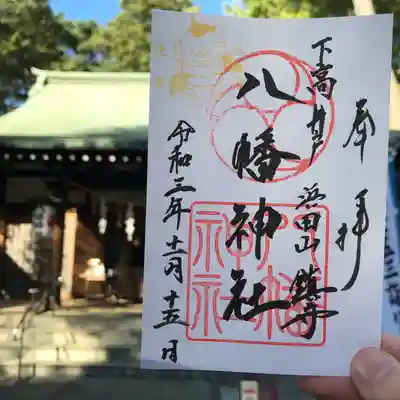 奉拝
下高井戸
浜田山 鎮守
八幡神社
八幡神社
令和三年十二月十五日